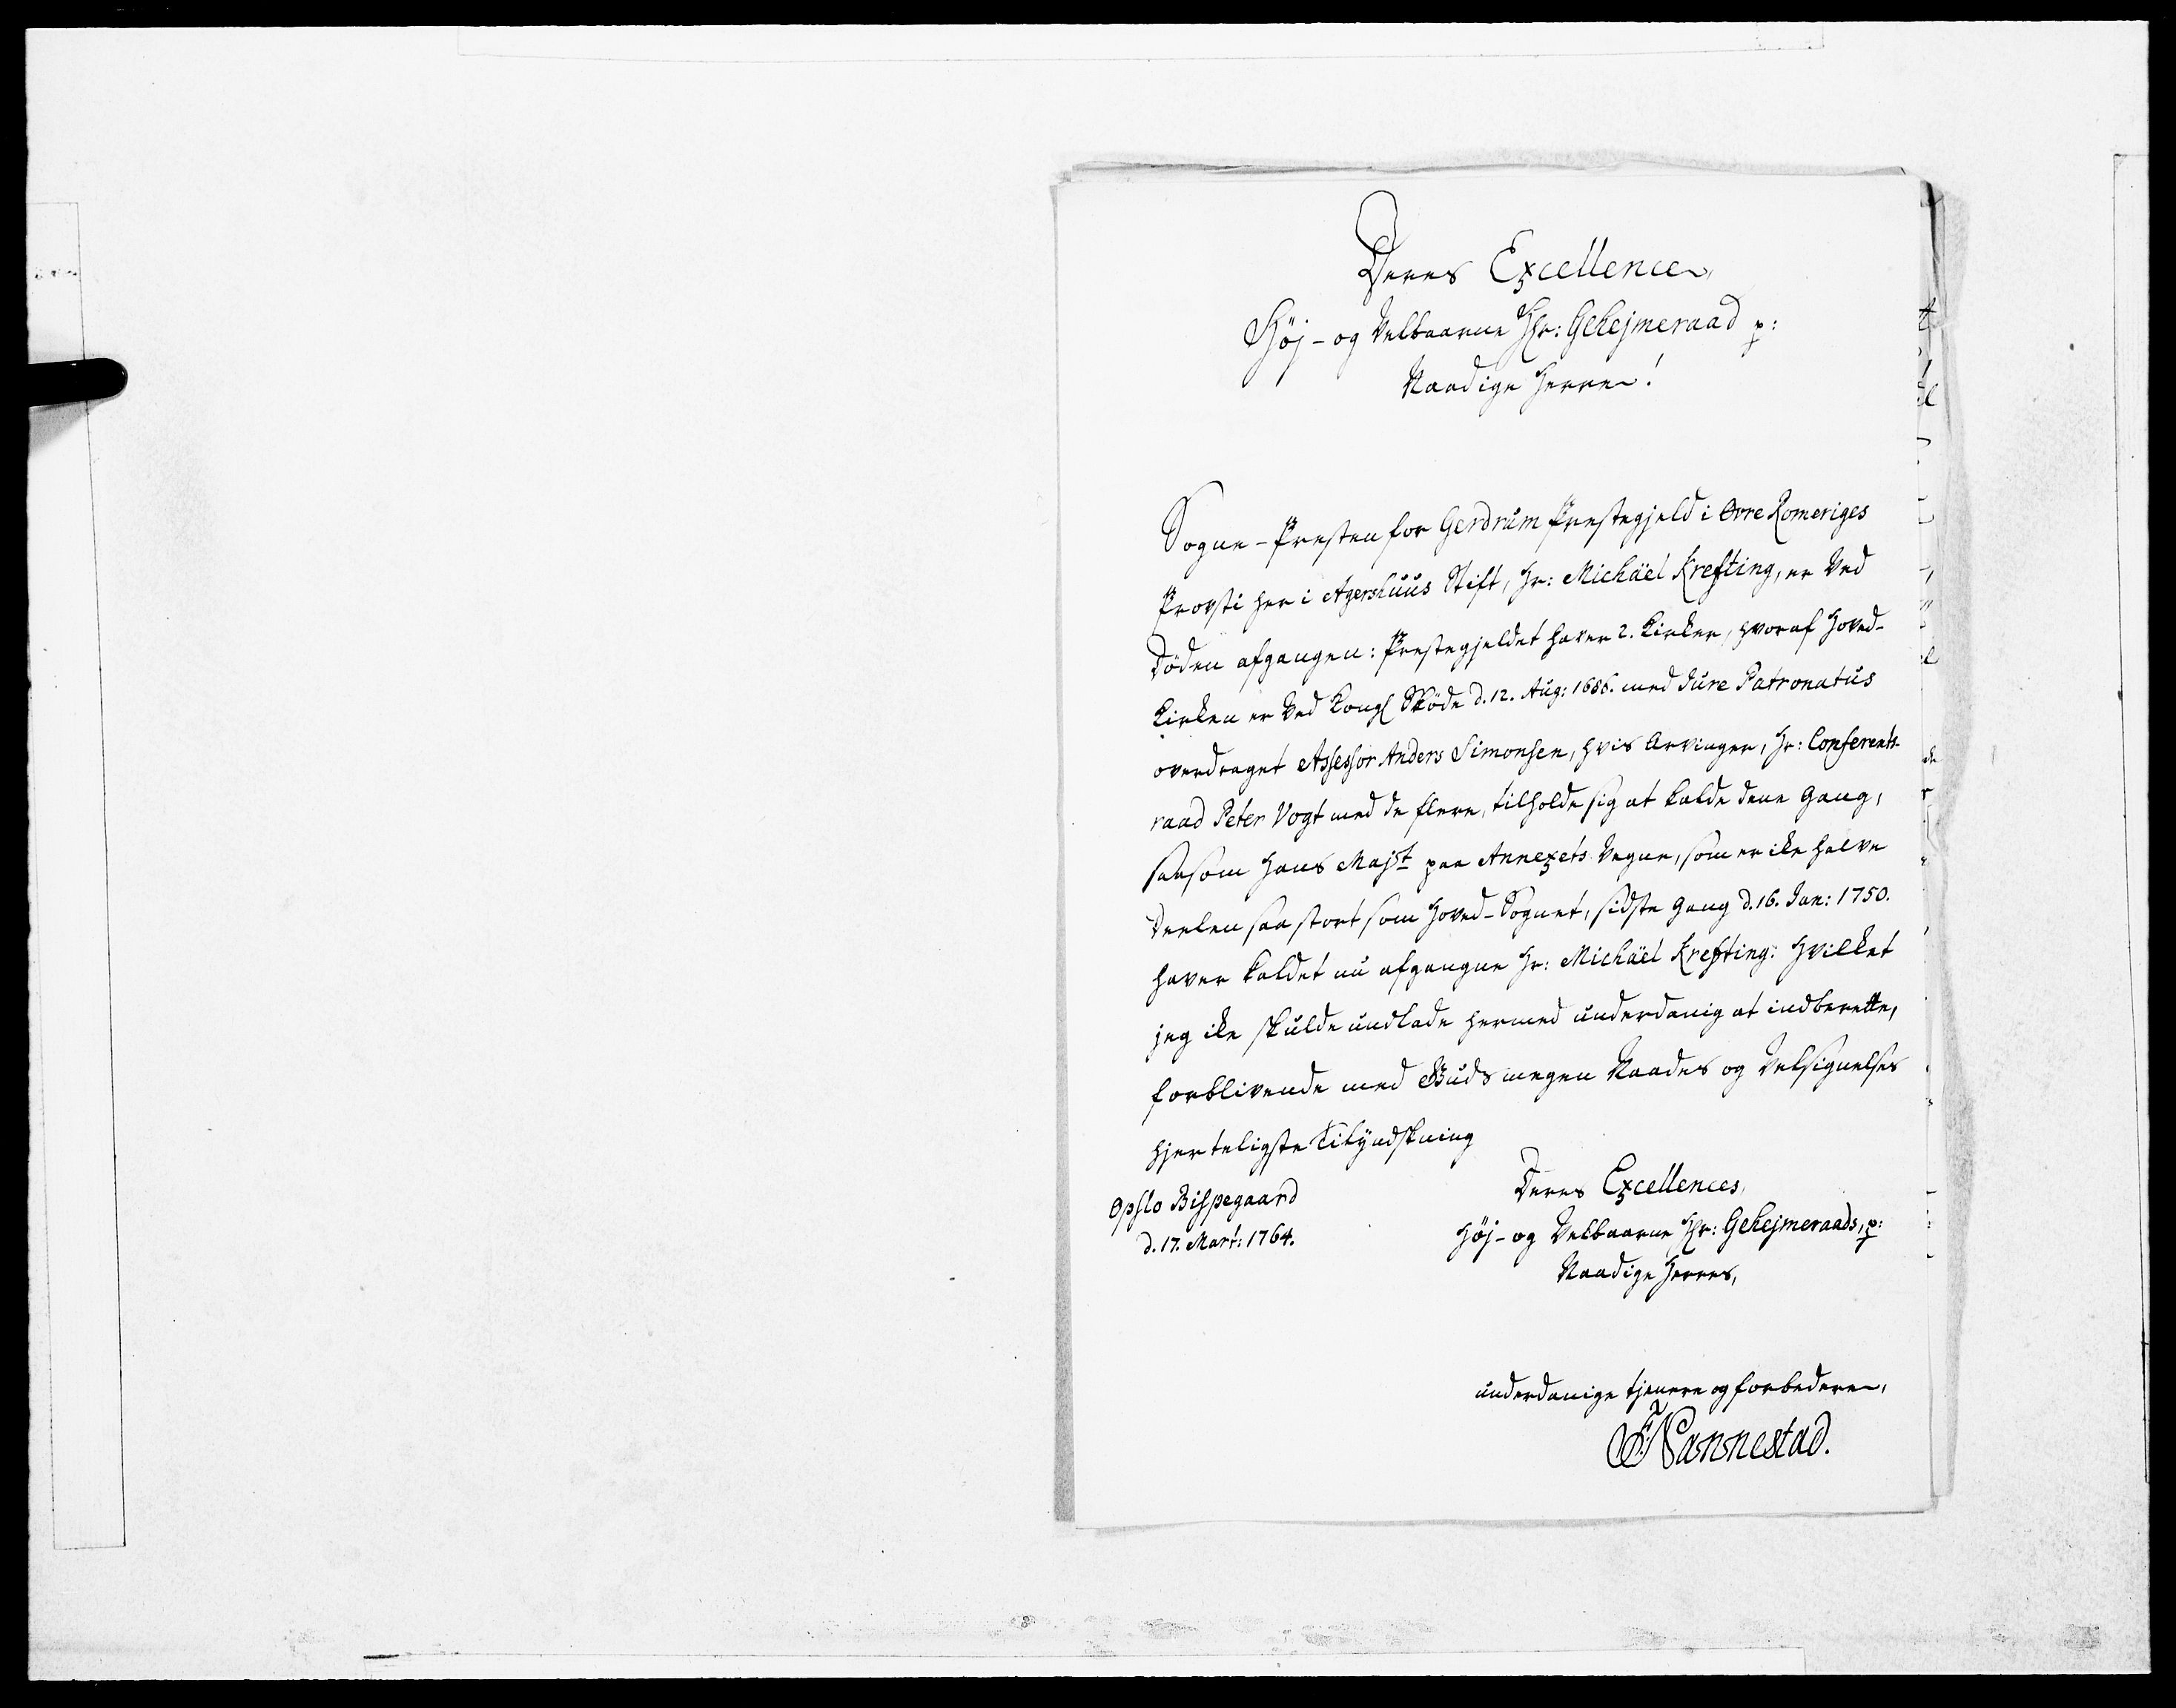 Deres Excellence,
Høj- og Velbaarne Hr: Gehejmeraad p:
Naadige Herre!
Sogne-Presten for Gerdrum Prestegjeld i Øvre Romeriges
Provsti her i Agershuus Stift, Hr: Michaël Krefting, er ved
Døden afgangen: Prestegjeldet haver 2. Kirker, hvoraf Hoved-
Kirken er ved Kongl Skøde d. 12. Aug: 1686. med Jure Patronatus
overdraget Assessor Anders Simonsen, hvis Arvinger, Hr: Conferents-
raad Peter Vogt med de flere, tilholde sig at kalde denne Gang,
saasom Hans Majst paa Annexets Vegne, som er ikke halve
Deelen saa stort som Hoved-Sognet, sidste Gang d. 16. Jan: 1750.
haver kaldet nu afgangne Hr: Michaël Krefting: hvilket
jeg ikke skulde undlade hermed underdanig at indberette,
forblivende med Guds megen Naades og Velsignelses
hjerteligste Tilynskning
Opslo Bispegaard
d. 17. Mart: 1764.
Deres Excellences,
Høj- og Velbaarne Hr: Gehejmeraads, p:
Naadige Herres,
underdanige tjenere og forbedere,
F. Nannestad.